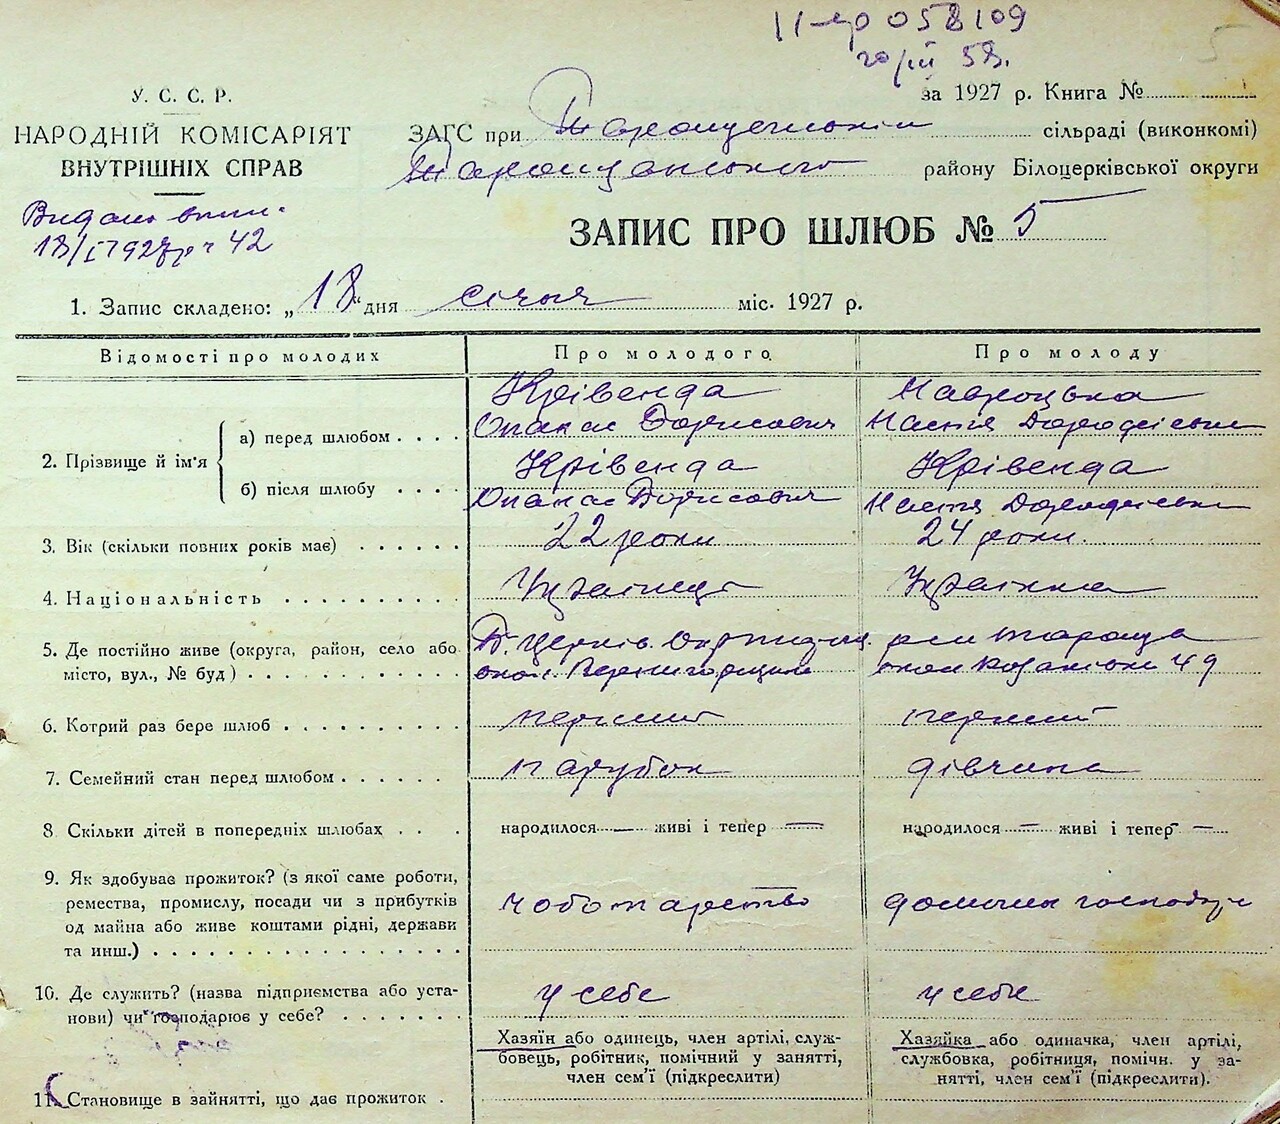 058109
У. С. С. Р.
НАРОДНІЙ КОМІСАРІЯТ
ВНУТРІШНІХ СПРАВ
за 1927 р. Книга №
ЗАГС при Таращанській сільраді (виконкомі)
Таращанського району Білоцерківської округи
Видано
18/I 1927р ч 42
ЗАПИС ПРО ШЛЮБ № 5
1. Запис складено: „18“ дня січня міс. 1927 р.
Відомості про молодих Про молодого Про молоду
2. Прізвище й ім'я
а) перед шлюбом
Крівенда
Опанас Борисович
Навроцька
Настя
б) після шлюбу
Крівенда
Опанас Борисович
Крівенда
Настя
3. Вік (скільки повних років має) 22 роки 24 роки
4. Національність Українець Українка
5. Де постійно живе (округа, район, село або
місто, вул., № буд)
Б. Церків. Окр
Тараща
49
6. Котрий раз бере шлюб перший перший
7. Семейний стан перед шлюбом парубок дівчина
8. Скільки дітей в попередніх шлюбах народилося — живі і тепер — народилося — живі і тепер —
9. Як здобуває прожиток? (з якої саме роботи,
ремества, промислу, посади чи з прибутків
од майна або живе коштами рідні, держави
та инш.)
чоботарство
домашнє
10. Де служить? (назва підприємства або уста-
нови) чи господарює у себе?
у себе у себе
11. Становище в зайнятті, що дає прожиток
Хазяїн або одинець, член артілі, служ-
бовець, робітник, помічний у занятті,
член сем'ї (підкреслити)
Хазяйка або одиначка, член артілі,
службовка, робітниця, помічн. у за-
нятті, член сем'ї (підкреслити).